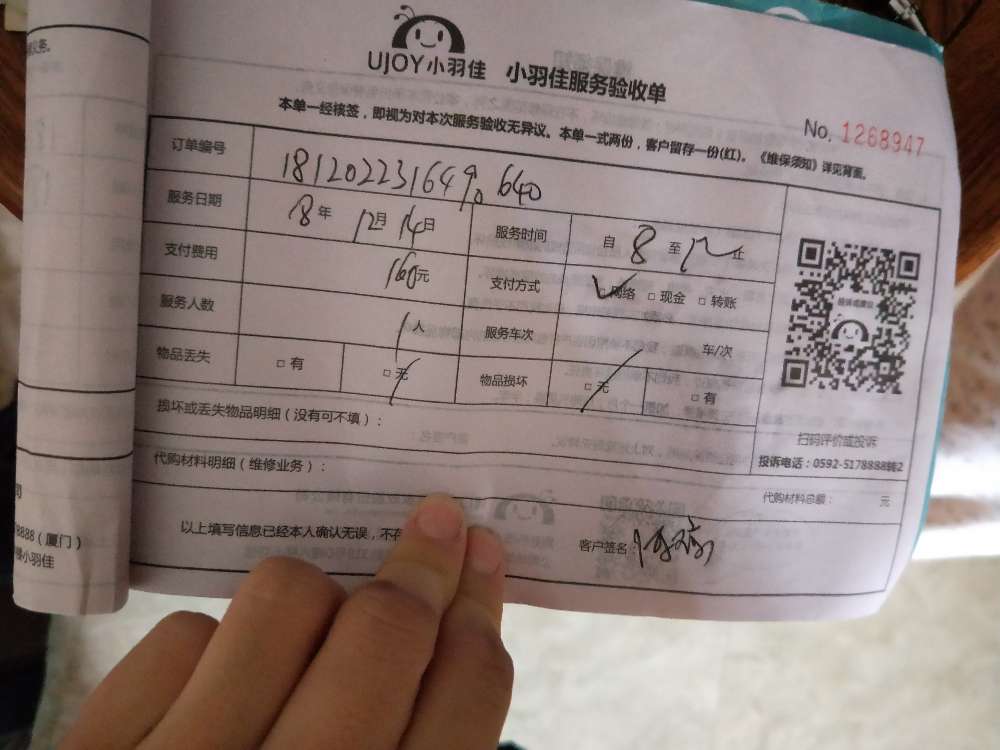 UJOY小羽佳 小羽佳服务验收单
本单一经核签，即视为对本次服务验收无异议。本单一式两份，客户留存一份(红)。《维保须知》详见背面。
No. 1268947
订单编号 181202231649640
服务日期 18年 12月 14日 服务时间 自 8 至 12 止
支付费用 160元 支付方式 □网络 □现金 □转账
服务人数 1人 服务车次 车/次
物品丢失 □有 □无 物品损坏 □无 □有
损坏或丢失物品明细（没有可不填）：
扫码评价或投诉
投诉电话：0592-5178888转2
代购材料明细（维修业务）： 代购材料总额： 元
以上填写信息已经本人确认无误，不存 客户签名：
8888（厦门）
小羽佳